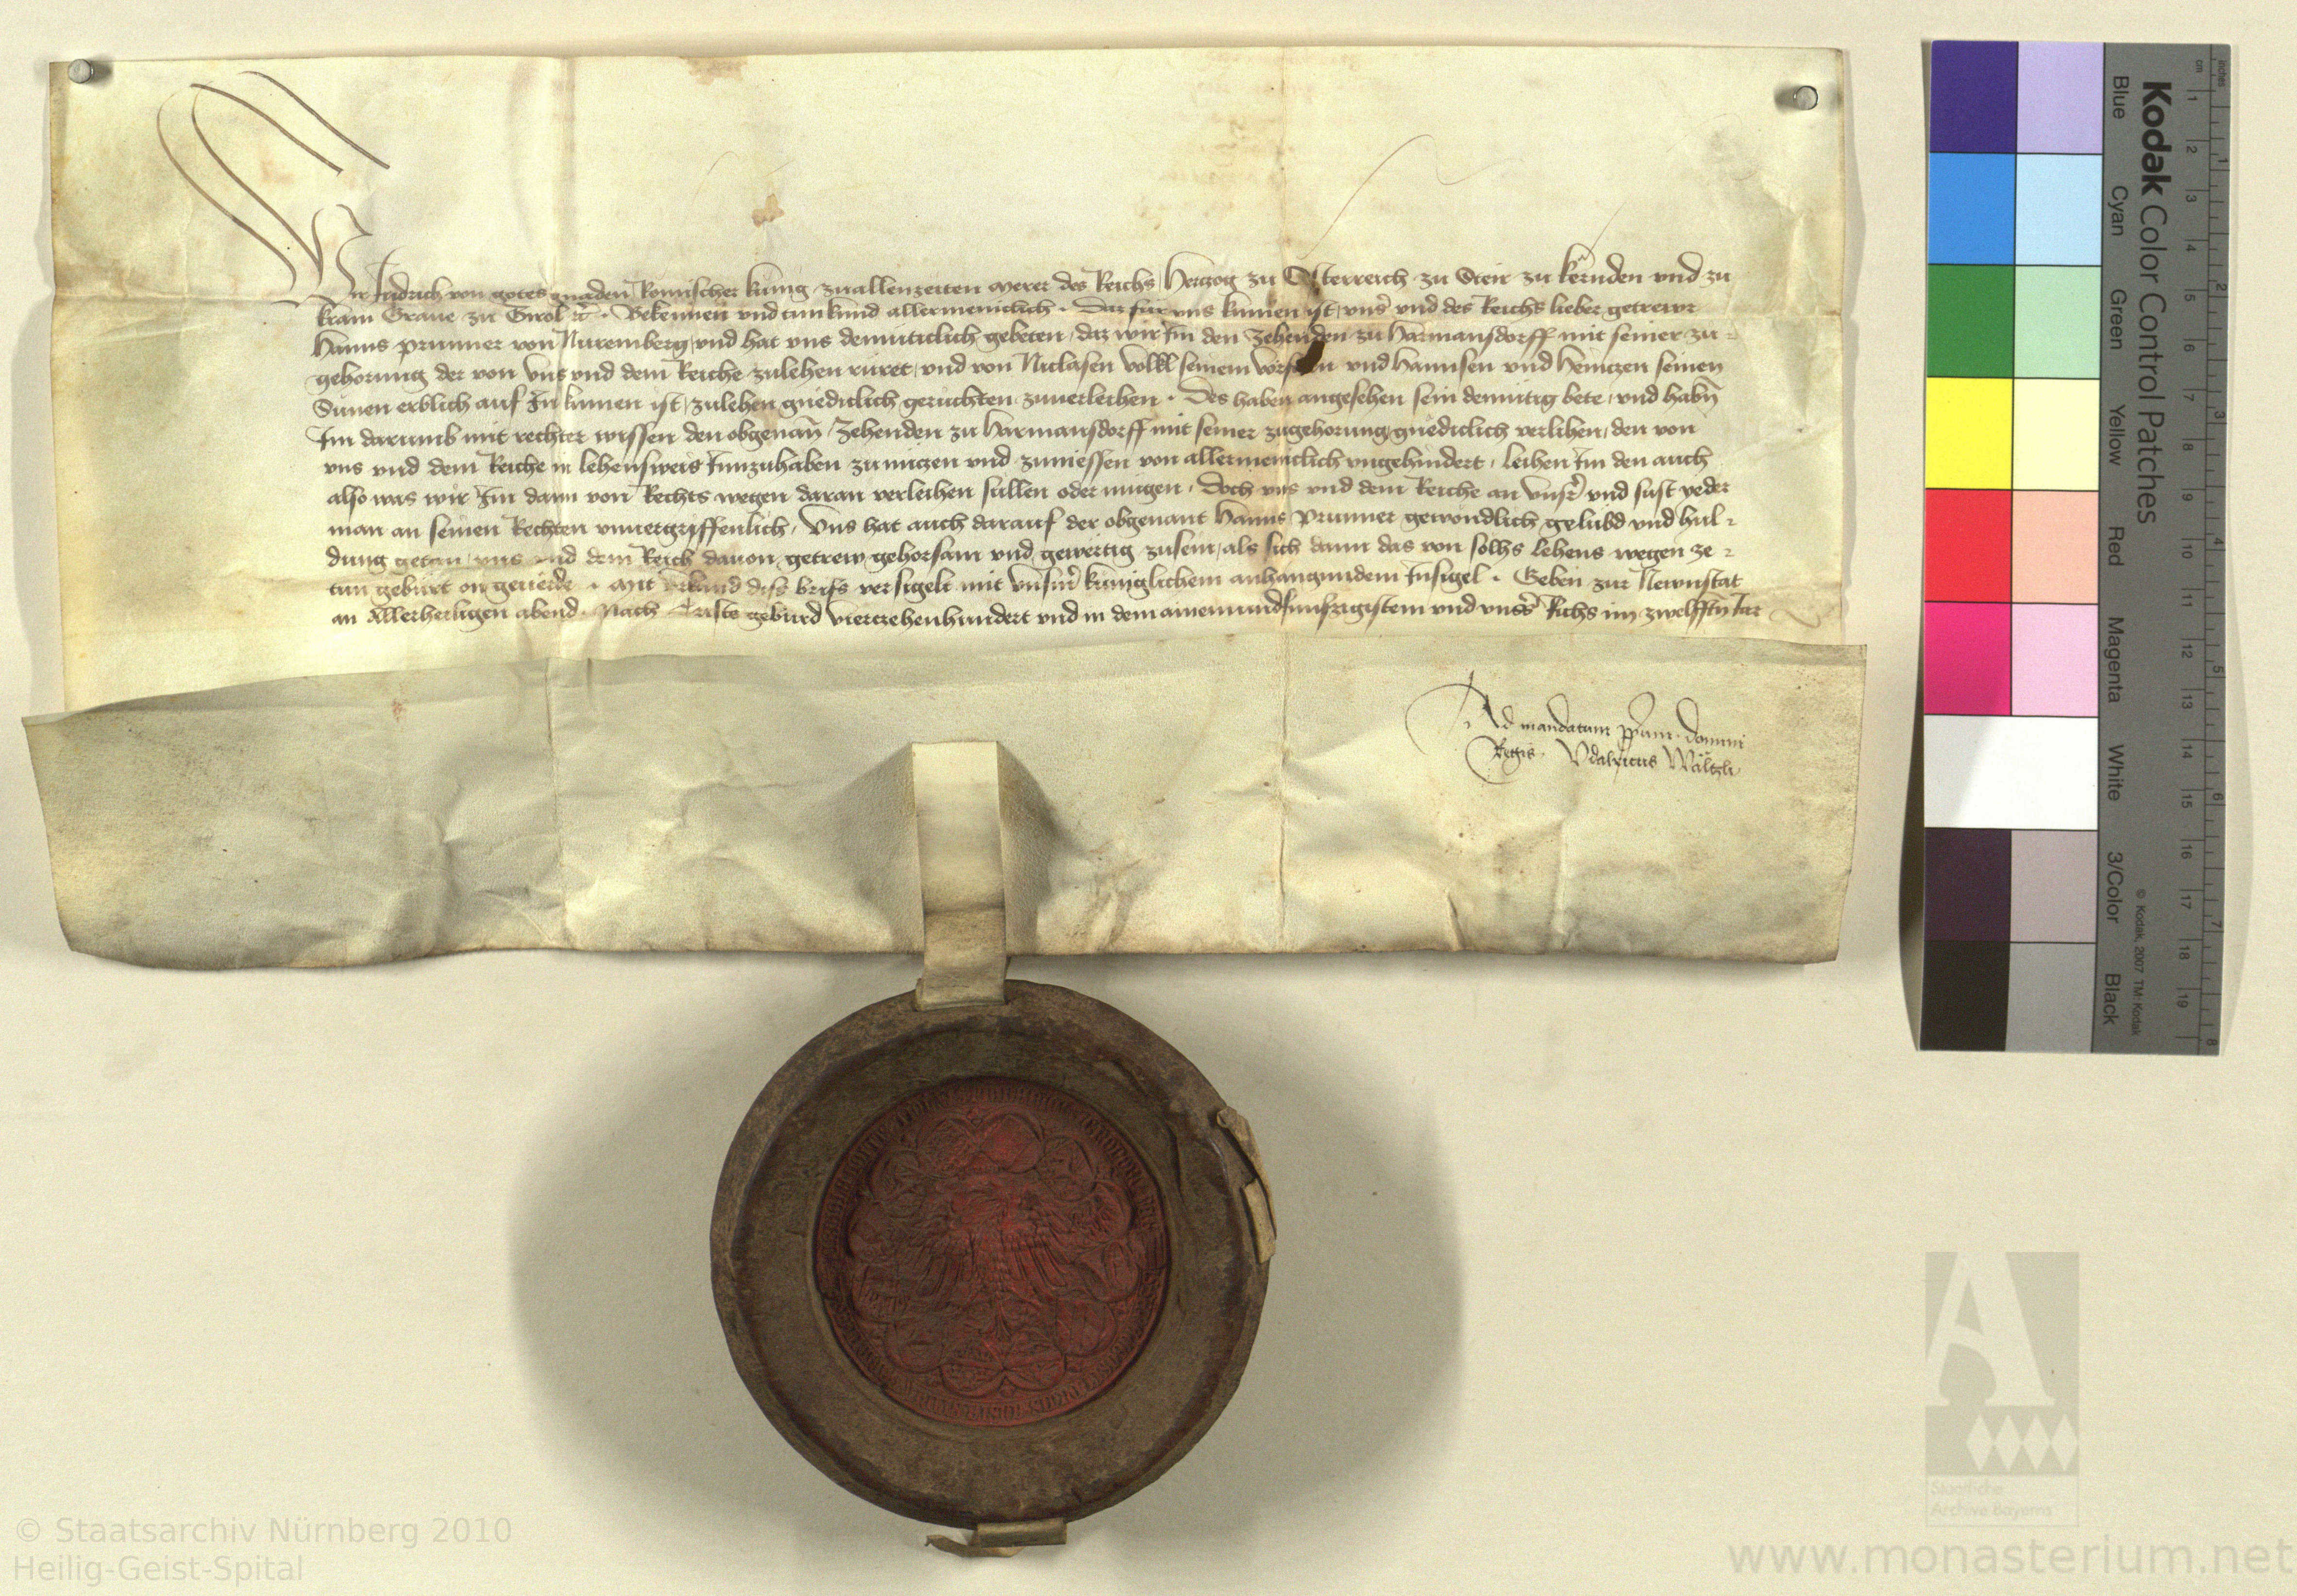 Wir Fridrich von gotes gnaden Romischer kunig zuallenzeiten merer des Reichs Herczog zu Osterreich zu Steir zu kernden vnd zu
krain Graue zu Tirol ꝛc. Bekennen vnd tun kund allermeniclich. Daz fur vns kumen ist, vnser̄ vnd des Reichs lieber getrewr
Hanns prunner von Nuremberg, vnd hat vns demuticlich gebeten, daz wir Im den Zehenden zu Harmansdorff mit seiner zu-
gehorung der von vns vnd dem Reiche zulehen ruret, vnd von Niclasen Volkl seinem und Hannsen vnd Heinczen seinen
Sunen erblich auf In kumen ist, zulehen gnediclich geruchten zuuerleihen. Des haben angesehen sein demutig bete, vnd habn̄
Im darumb mit rechter wissen den obgenan̄ Zehenden zu Harmansdorff mit seiner zugehorung gnediclich verlihen, den von
vns vnd dem Reiche in lehensweis Innzuhaben zunuczen vnd zuniessen von allermeniclich vngehindert, leihen Im den auch
also was wir Im dann von Rechts wegen daran verleihen sullen oder mugen. Doch vns vnd dem Reiche an vnsr̄ vnd sust yeder
man an seinen Rechten vnuergriffenlich, Vns hat auch darauf der obgenant Hanns Prunner gewondlich gelubd vnd hul-
dung getan, vns vnd dem Reich dauon getrew gehorsam vnd gewertig zusein, als sich dann das von solhs lehens wegen ze-
tun geburt on geuerde. Mit vrkund diss briefs versigelt mit vnserm̄ kuniglichem anhangundem Insigel. Geben zur Newnstat
an Allerheiligen abend. Nach Cristi geburd vierczehenhundert vnd in dem ainemundfunfczigistem vnd vnsers̄ Richs im zwelfftn̄ Jar
Ad mandatum ꝓprium domini
Regis. Vdalricus Wältzli
Kodak Color Control Patches
Blue Cyan Green Yellow Red Magenta White 3/Color Black
© Kodak, 2007 TM: Kodak
cm 1 2 3 4 5 6 7 8 9 10 11 12 13 14 15 16 17 18 19
inches 1 2 3 4 5 6 7 8
Staatliche
Archive Bayerns
© Staatsarchiv Nürnberg 2010
Heilig-Geist-Spital
www.monasterium.net